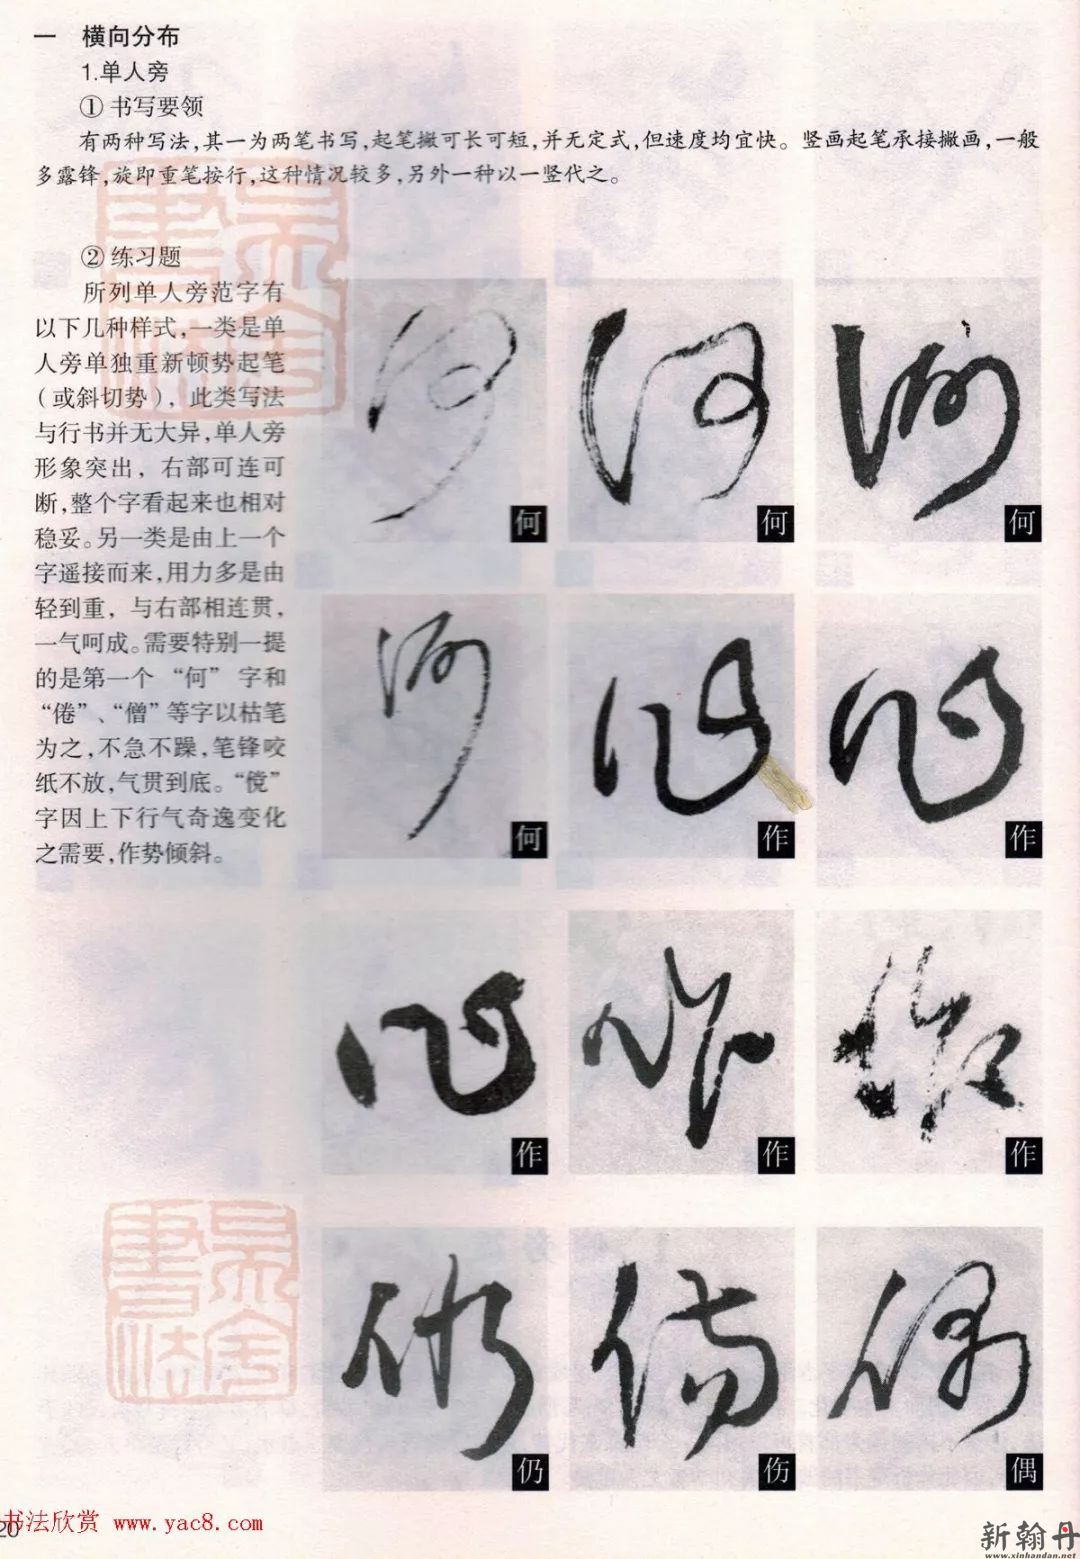 一 横向分布
1.单人旁
① 书写要领
有两种写法,其一为两笔书写,起笔撇可长可短,并无定式,但速度均宜快。竖画起笔承接撇画,一般
多露锋,旋即重笔按行,这种情况较多,另外一种以一竖代之。
② 练习题
所列单人旁范字有
以下几种样式,一类是单
人旁单独重新顿势起笔
(或斜切势),此类写法
与行书并无大异,单人旁
形象突出,右部可连可
断,整个字看起来也相对
稳妥。另一类是由上一个
字遥接而来,用力多是由
轻到重,与右部相连贯,
一气呵成。需要特别一提
的是第一个“何”字和
“倦”、“僧”等字以枯笔
为之,不急不躁,笔锋咬
纸不放,气贯到底。“傥”
字因上下行气奇逸变化
之需要,作势倾斜。
何 何 何
何 作 作
作 作 作
仍 伤 偶
20
书法欣赏 www.yac8.com
新翰丹
www.xinhandan.net